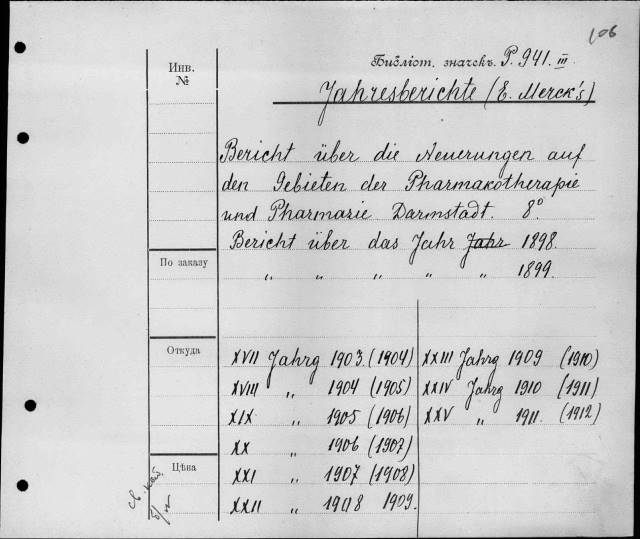 106
Библіот. значекъ P. 941. III.
Инв.
№
Jahresberichte (E. Merck's)
Bericht über die Neuerungen auf
den Gebieten der Pharmakotherapie
und Pharmazie Darmstadt. 8°.
Bericht über das Jahr Jahr 1898.
" " " " " 1899.
По заказу
Откуда
XVII Jahrg 1903. (1904)
XVIII " 1904 (1905)
XIX " 1905 (1906)
XX " 1906 (1907)
XXI " 1907 (1908)
XXII " 1908 1909.
XXIII Jahrg 1909 (1910)
XXIV Jahrg 1910 (1911)
XXV " 1911. (1912)
Цѣна